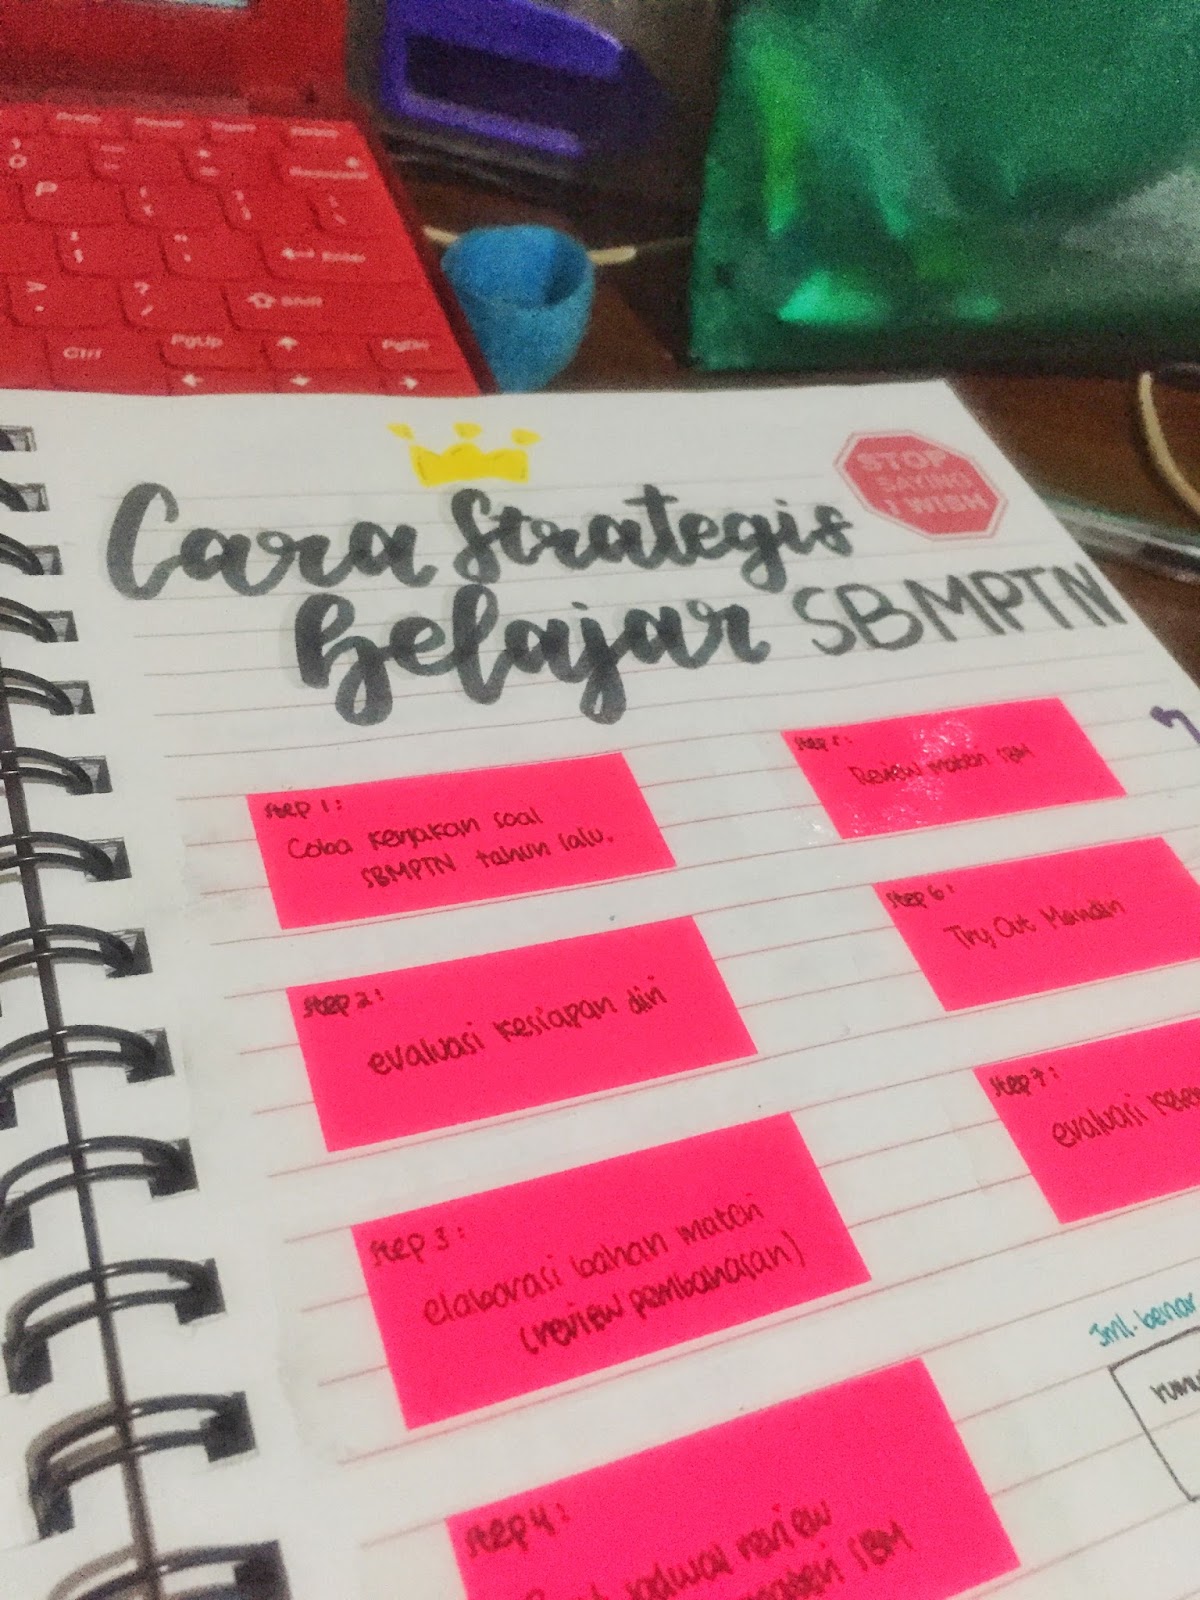 PgUp
PgDn
Ctrl
Shift
Enter
P
STOP
SAYING
I WISH
Cara Strategis
Belajar SBMPTN
Step 1:
Coba kerjakan soal
SBMPTN tahun lalu.
Step 2:
evaluasi kesiapan diri
Step 3:
elaborasi bahan materi
(review pembahasan)
Step 4:
jadwal review
materi SBM
Step 5:
Review materi SBM
Step 6:
Try Out Mandiri
Step 7:
evaluasi
Jml. benar